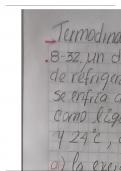 Termodiná
8-32. un d
de refrigera
se enfría a
como líqu
y 24°c,
a) la exer